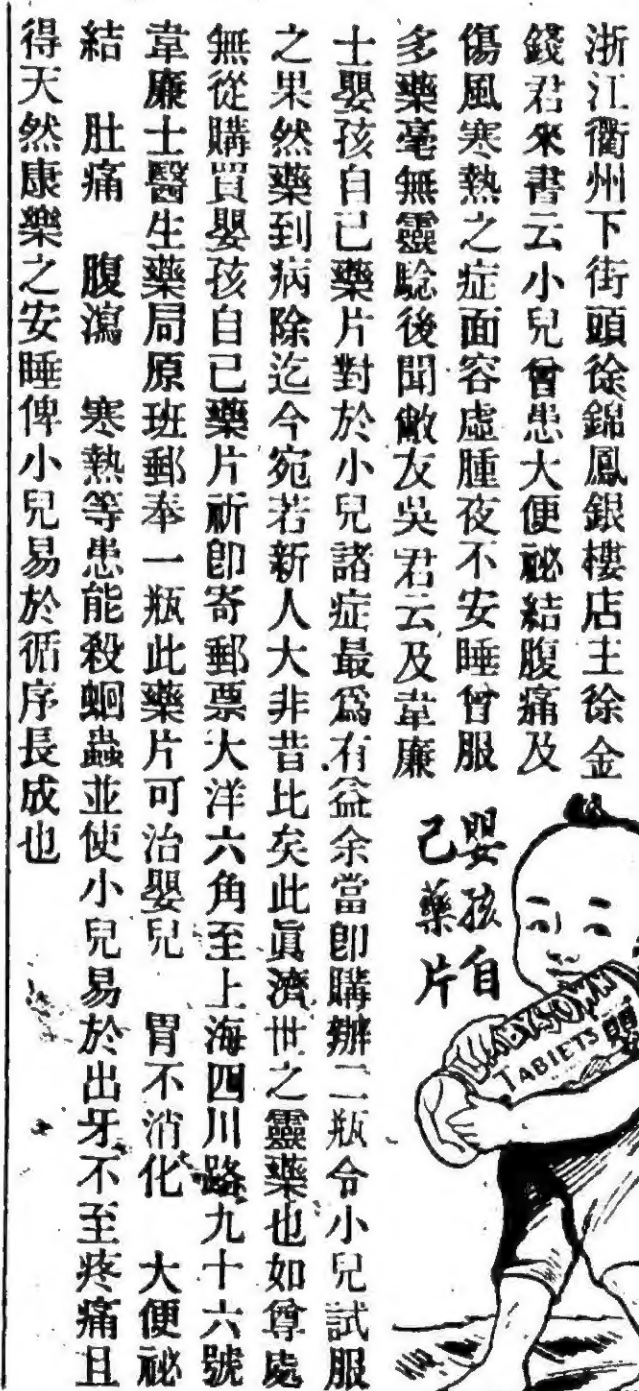 浙江衢州下街頭徐錦鳳銀樓店主徐金
錢君來書云小兒曾患大便祕結腹痛及
傷風寒熱之症面容虛腫夜不安睡曾服
多藥毫無靈驗後聞敝友吳君云及韋廉
士嬰孩自己藥片對於小兒諸症最爲有益余當卽購辦二瓶令小兒試服
之果然藥到病除迄今宛若新人大非昔比矣此眞濟世之靈藥也如尊處
無從購買嬰孩自已藥片祈卽寄郵票大洋六角至上海四川路九十六號
韋廉士醫生藥局原班郵奉一瓶此藥片可治嬰兒 胃不消化 大便祕
結 肚痛 腹瀉 寒熱等患能殺蛔蟲並使小兒易於出牙不至疼痛且
得天然康樂之安睡俾小兒易於循序長成也
嬰孩自
己藥片
TABLETS